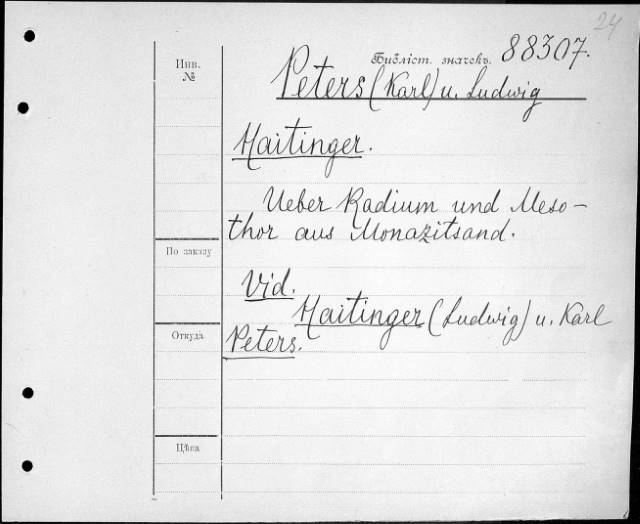 24
Инв.
№
Библіот. значекъ. 88307.
Peters (Karl) u. Ludwig
Haitinger.
Ueber Radium und Meso-
thor aus Monazitsand.
По заказу
Vid.
Haitinger (Ludwig) u. Karl
Откуда
Peters.
Цѣна